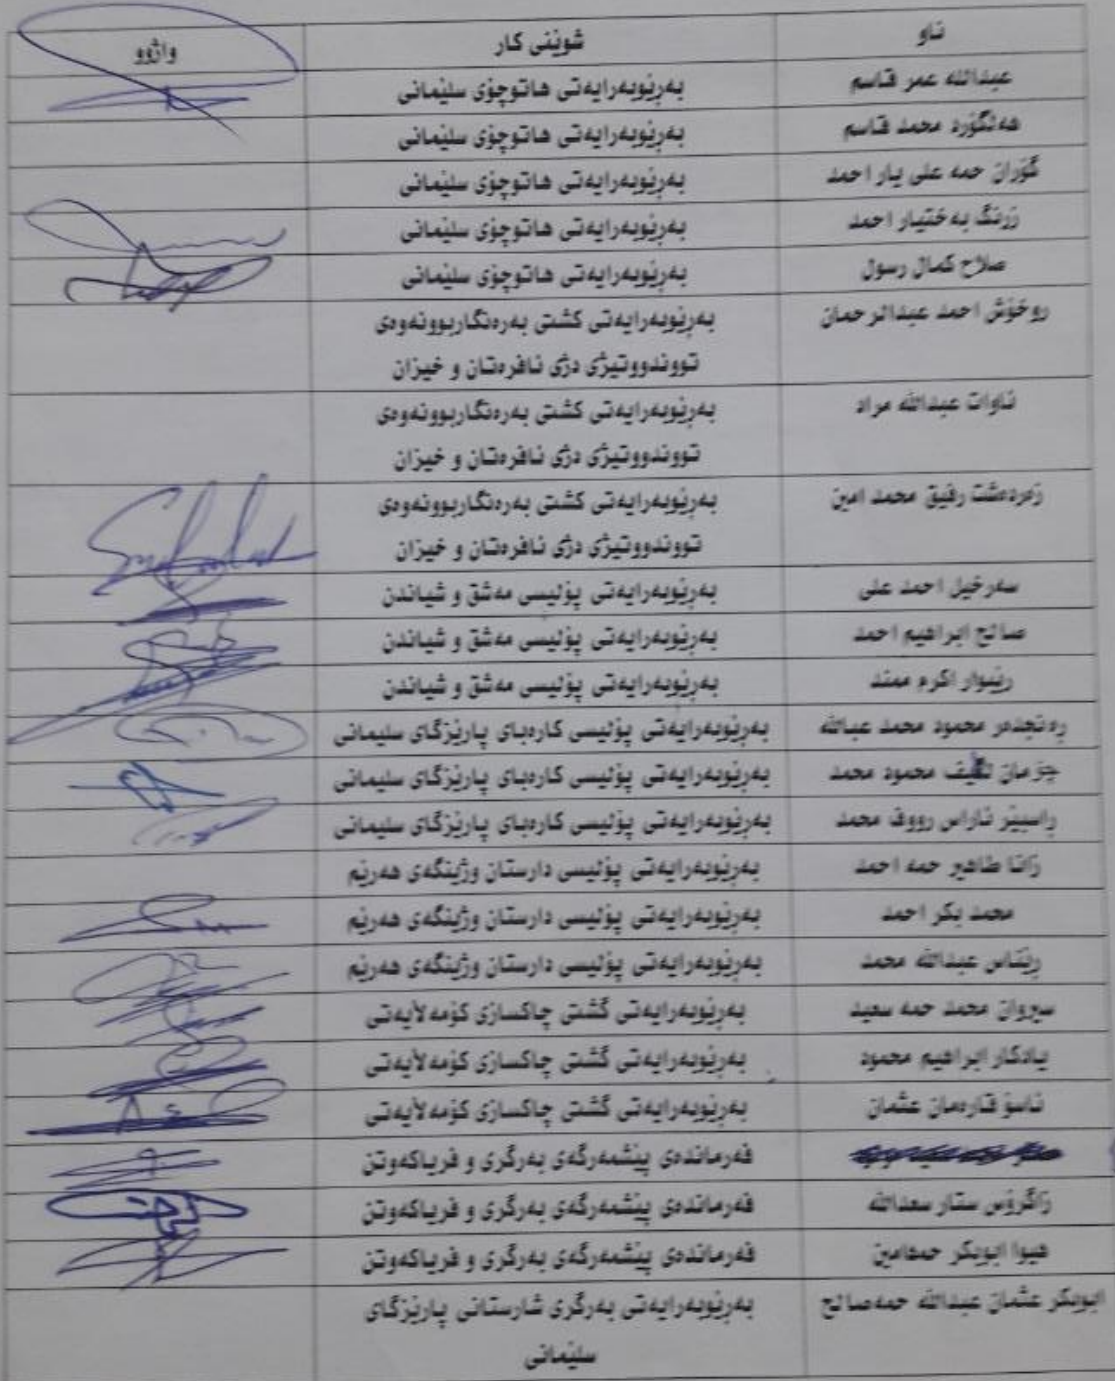 ناو شوێنی کار واژوو
عبدالله عمر قاسم بەڕێوبەرایەتی هاتوچۆی سلێمانی
هەنگۆرد محمد قاسم بەڕێوبەرایەتی هاتوچۆی سلێمانی
گۆران حمه علی یار احمد بەڕێوبەرایەتی هاتوچۆی سلێمانی
زرنگ بەختیار احمد بەڕێوبەرایەتی هاتوچۆی سلێمانی
صلاح کمال رسول بەڕێوبەرایەتی هاتوچۆی سلێمانی
روخۆش احمد عبدالرحمان بەڕێوبەرایەتی کشتی بەرەنگاربوونەوەی
تووندووتیژی دژی ئافرەتان و خیزان
ئاوات عبدالله مراد بەڕێوبەرایەتی کشتی بەرەنگاربوونەوەی
تووندووتیژی دژی ئافرەتان و خیزان
زەردەشت رفیق محمد امین بەڕێوبەرایەتی کشتی بەرەنگاربوونەوەی
تووندووتیژی دژی ئافرەتان و خیزان
سەرخیل احمد علی بەڕێوبەرایەتی پۆلیسی مەشق و شیاندن
صالح ابراهیم احمد بەڕێوبەرایەتی پۆلیسی مەشق و شیاندن
ریبوار اکرم ممند بەڕێوبەرایەتی پۆلیسی مەشق و شیاندن
ڕەنجدەر محمود محمد عبالله بەڕێوبەرایەتی پۆلیسی کارەبای پارێزگای سلیمانی
چۆمان محمود محمد بەڕێوبەرایەتی پۆلیسی کارەبای پارێزگای سلیمانی
ڕاسپێر ئاراس رووف محمد بەڕێوبەرایەتی پۆلیسی کارەبای پارێزگای سلیمانی
زانا طاهیر حمه احمد بەڕێوبەرایەتی پۆلیسی دارستان وژینگەی هەرێم
محمد بکر احمد بەڕێوبەرایەتی پۆلیسی دارستان وژینگەی هەرێم
ڕێناس عبدالله محمد بەڕێوبەرایەتی پۆلیسی دارستان وژینگەی هەرێم
سیروان محمد حمه سعید بەڕێوبەرایەتی گشتی چاکسازی کۆمەلایەتی
یادکار ابراهیم محمود بەڕێوبەرایەتی گشتی چاکسازی کۆمەلایەتی
ئاسۆ قارەمان عثمان بەڕێوبەرایەتی گشتی چاکسازی کۆمەلایەتی
فەرماندەی پێشمەرگەی بەرگری و فریاکەوتن
زاگرۆس ستار سعدالله فەرماندەی پێشمەرگەی بەرگری و فریاکەوتن
هیوا ابوبکر حمەامین فەرماندەی پێشمەرگەی بەرگری و فریاکەوتن
ابوبکر عثمان عبدالله حمەصالح بەڕێوبەرایەتی بەرگری شارستانی پارێزگای
سلێمانی